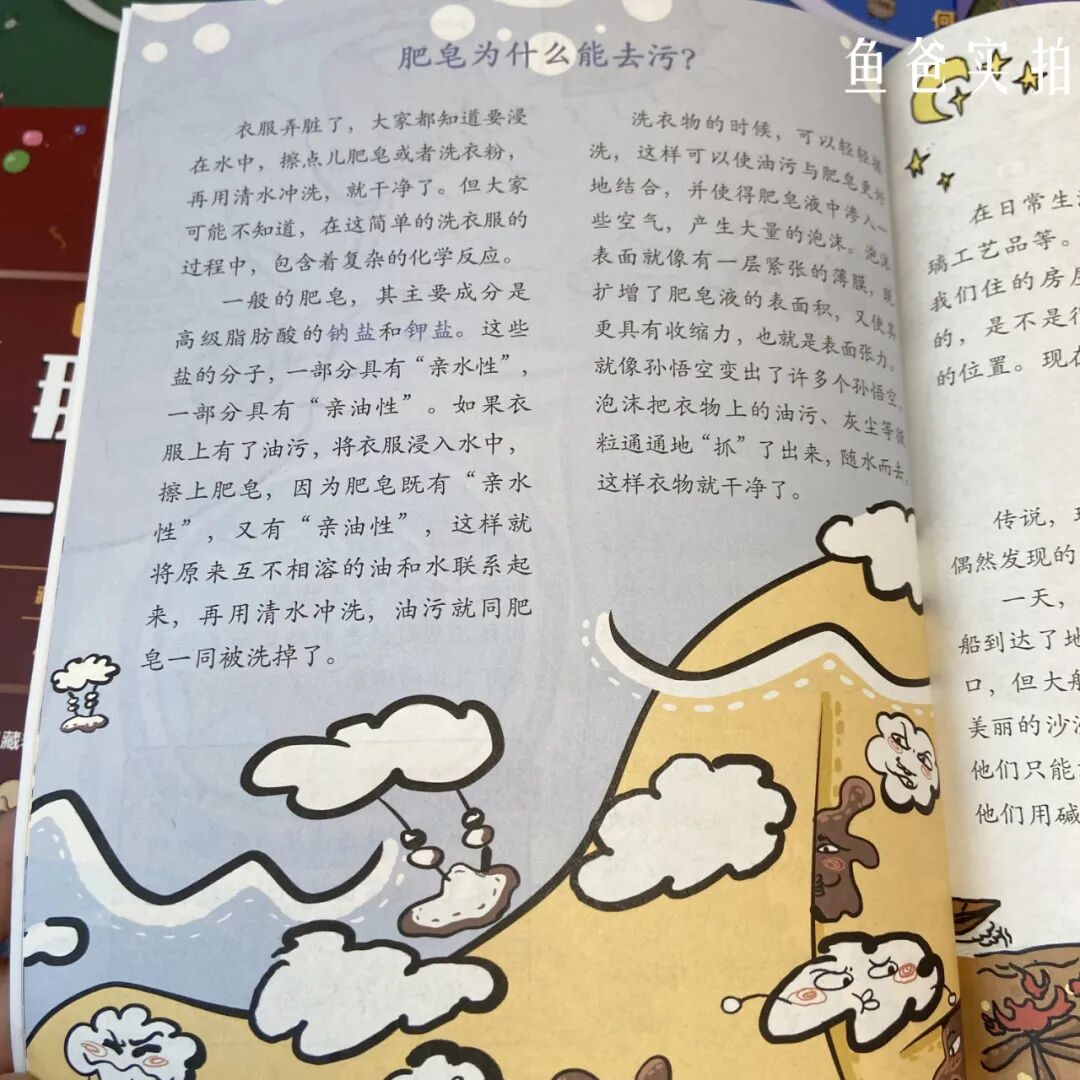 鱼爸实拍
肥皂为什么能去污？
衣服弄脏了，大家都知道要浸
在水中，擦点儿肥皂或者洗衣粉，
再用清水冲洗，就干净了。但大家
可能不知道，在这简单的洗衣服的
过程中，包含着复杂的化学反应。
一般的肥皂，其主要成分是
高级脂肪酸的钠盐和钾盐。这些
盐的分子，一部分具有“亲水性”，
一部分具有“亲油性”。如果衣
服上有了油污，将衣服浸入水中，
擦上肥皂，因为肥皂既有“亲水
性”，又有“亲油性”，这样就
将原来互不相溶的油和水联系起
来，再用清水冲洗，油污就同肥
皂一同被洗掉了。
洗衣物的时候，可以轻轻揉
洗，这样可以使油污与肥皂更好
地结合，并使得肥皂液中渗入一
些空气，产生大量的泡沫。泡沫
表面就像有一层紧张的薄膜，既
扩增了肥皂液的表面积，又使其
更具有收缩力，也就是表面张力。
就像孙悟空变出了许多个孙悟空，
泡沫把衣物上的油污、灰尘等微
粒通通地“抓”了出来，随水而去，
这样衣物就干净了。
在日常生
璃工艺品等。
我们住的房
的，是不是
的位置。现在
传说，
偶然发现的
一天，
船到达了地
口，但大船
美丽的沙
他们只能
他们用碱
何
藏